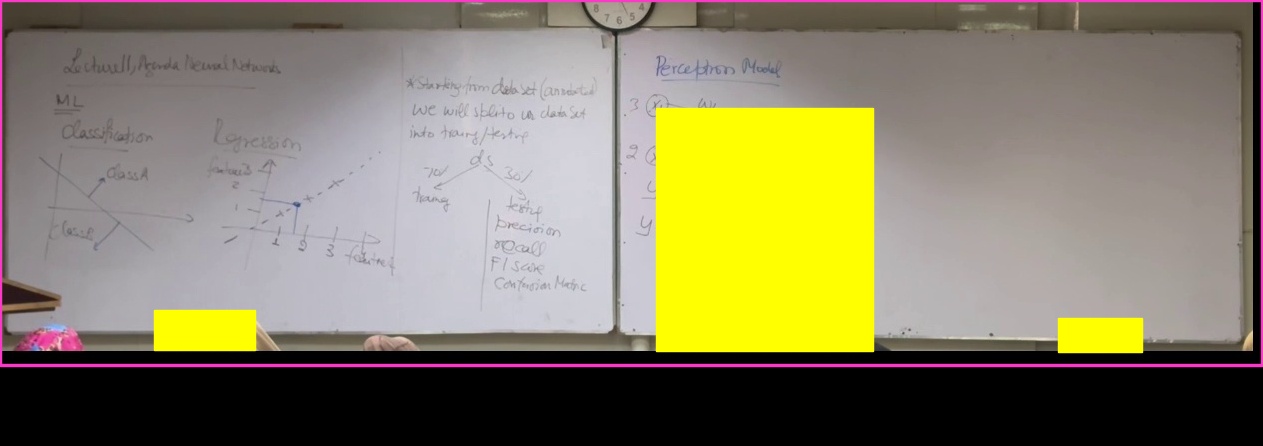 Lecture 11, Agenda Neural Network
ML
Classification
Class A
Class B
Regression
feature 2
2
1
1 2 3
feature 1
* Starting from dataset (annotated)
we will split in dataset
into traing/testig
ds
70% 30%
traing
testig
precision
recall
F1 score
Confusion Matric
Perceptron Model
3 x1 W1
2 x
y
y
8 7 6 5 4